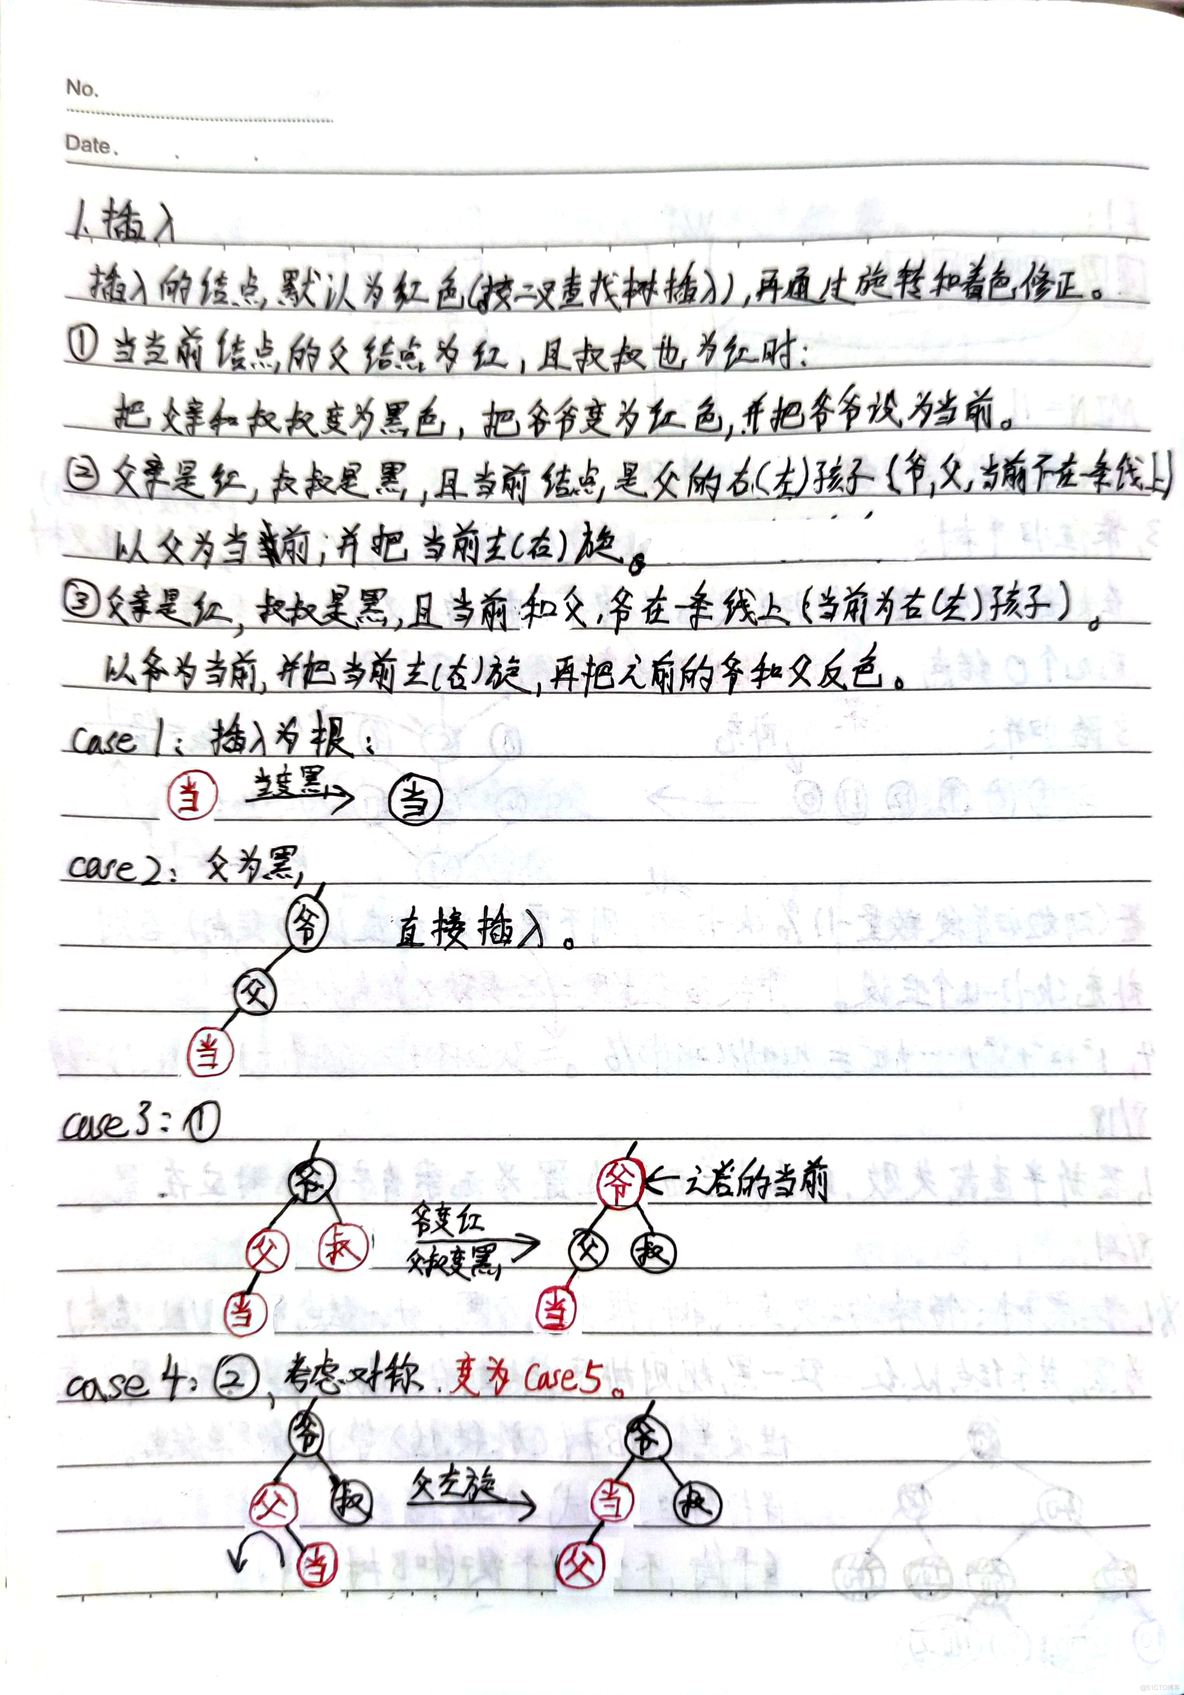 No.
Date.
1. 插入
插入的结点默认为红色(按二叉查找树插入),再通过旋转和着色修正。
① 当当前结点的父结点为红,且叔叔也为红时:
把父亲和叔叔变为黑色,把爷爷变为红色,并把爷爷设为当前。
② 父亲是红,叔叔是黑,且当前结点是父的右(左)孩子(爷,父,当前不在一条线上)
以父为当前;并把当前左(右)旋。
③ 父亲是红,叔叔是黑,且当前和父,爷在一条线上(当前为右(左)孩子)。
以爷为当前,并把当前左(右)旋,再把之前的爷和父反色。
case 1: 插入为根:
当 当变黑 当
case 2: 父为黑
爷 直接插入。
父
当
case 3: ①
爷 爷 之后的当前
父 叔 爷变红 父叔变黑 父 叔
当 当
case 4: ②,考虑对称.变为case5。
爷 爷
父 叔 父左旋 当 叔
当 父
@51CTO博客